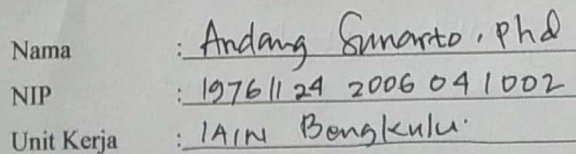 Nama : Andang Sunarto, PhD
NIP : 19761124 2006 04 1002
Unit Kerja : IAIN Bengkulu.